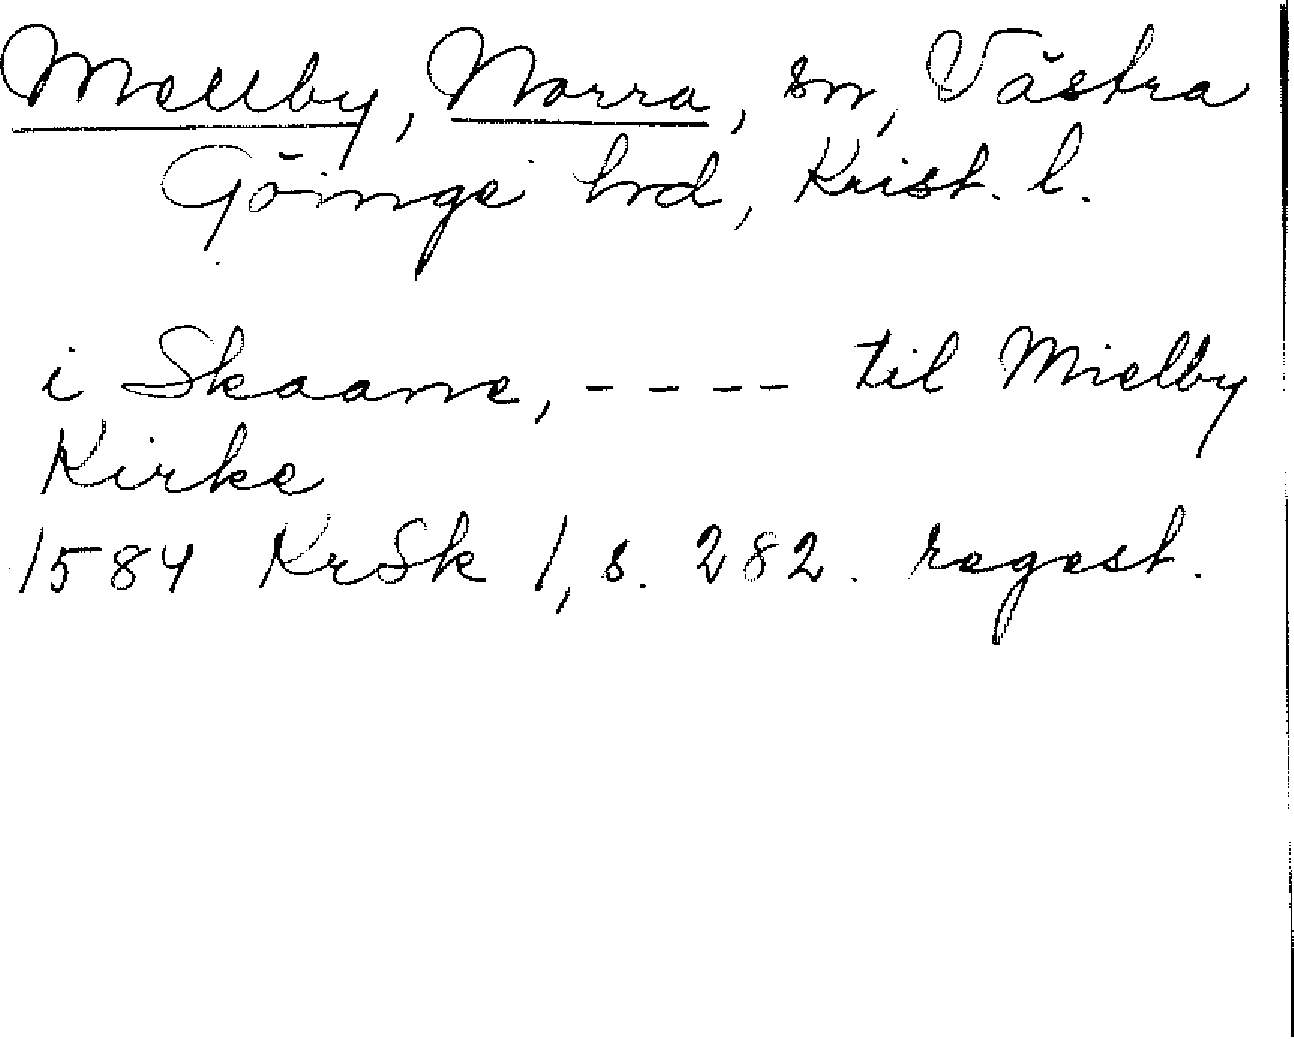 Mellby, Norra, sn, Västra
Göinge hrd, Krist. l.
i Skaane, ---- til Mielby
Kirke
1584 KrSk 1, s. 282. regest.